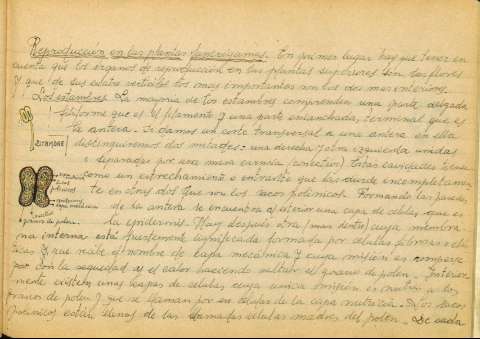 Reproduccion en las plantas fanerógamas. En primer lugar hay que tener en
cuenta que los organos de reproduccion en las plantas superiores son las flores
y que de sus cuatro verticilos los mas importantes son los dos mas interiores.
Los estambres. La mayoria de los estambres comprenden una parte delgada
filiforme que es el filamento y una parte ensanchada, terminal que es
la antera. Si damos un corte transversal a una antera en ella
ESTAMBRE
distinguiremos dos mitades: una derecha y otra izquierda unidas
o separadas por una masa carnosa (conectivo) Estas cavidades tienen
como un estrechamiento o entrante que las divide incompletamen
te en otras dos que son los sacos polinicos. Formando las paredes
de la antera se encuentra al exterior una capa de celulas que es
granos de polen
la epidermis. Hay despues otra (mas dentro) cuya membra
na interna está fuertemente lignificada formada por celulas fibrosas
y que recibe el nombre de capa mecánica y cuya mision es romperse
por con la sequedad y el calor haciendo saltar el grano de polen. Interior
mente existen unas capas de celulas, cuya unica mision es nutrir a los
granos de polen y que se llaman por eso celulas de la capa nutricia. Los sacos
polinicos están llenos de las llamadas celulas madres del polen. De cada